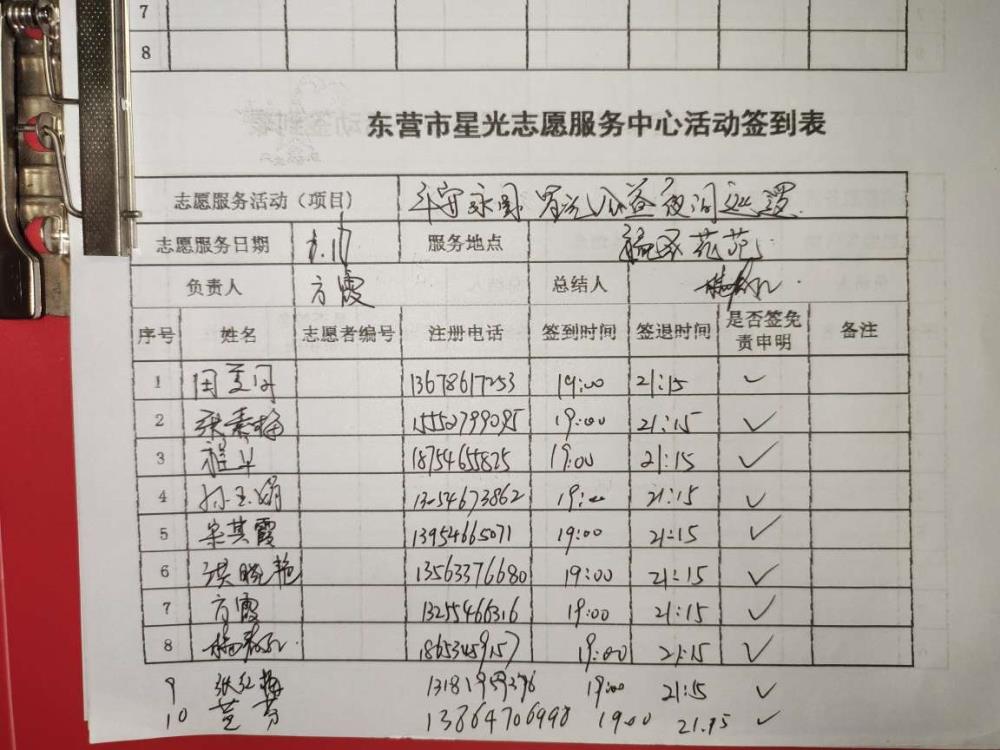 7
8
东营市星光志愿服务中心活动签到表
志愿服务活动（项目） 公益夜间巡逻
志愿服务日期 服务地点
负责人 方霞 总结人
序号 姓名 志愿者编号 注册电话 签到时间 签退时间 是否签免责申明 备注
1 13678617253 19:00 21:15 ✓
2 张素梅 15552799095 19:00 21:15 ✓
3 18754655825 19:00 21:15 ✓
4 孙玉娟 13254673862 19:00 21:15 ✓
5 宋其霞 13954665071 19:00 21:15 ✓
6 洪晓艳 13563376680 19:00 21:15 ✓
7 方霞 13255466316 19:00 21:15 ✓
8 19:00 21:15 ✓
9 张红梅 19:00 21:15 ✓
10 13864706998 19:00 21.15 ✓